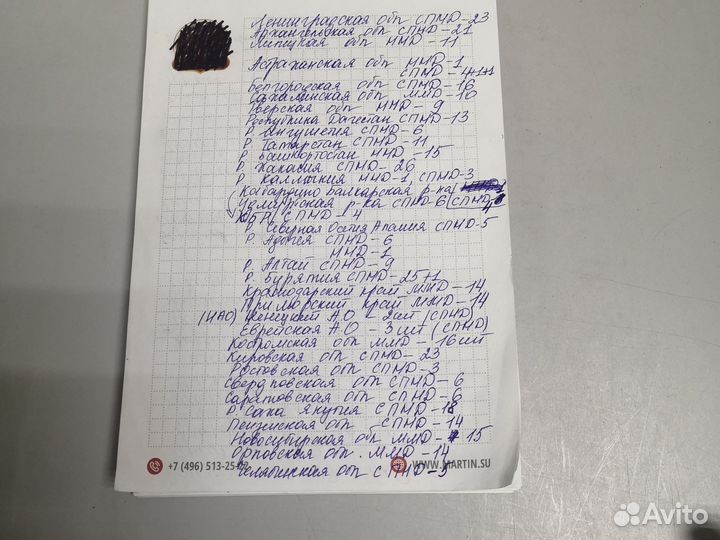 Ленинградская обл СПМД-23
Архангельская обл СПМД-21
Липецкая обл ММД-11
Астраханская обл ММД-1
СПМД-4+1+1
Белгородская обл СПМД-16
Сахалинская обл ММД-10
Тверская обл ММД-9
Республика Дагестан СПМД-13
Р. Ингушетия СПМД-6
Р. Татарстан СПМД-11
Р. Башкортостан ММД-15
Р. Хакасия СПМД-26
Р. Калмыкия ММД-1, СПМД-3
Кабардино Балкарская р-ка
Удмуртская р-ка СПМД-6 (СПМД
КБР (СПМД-4
Р. Северная Осетия Алания СПМД-5
Р. Адыгея СПМД-6
ММД-1
Р. Алтай СПМД-9
Р. Бурятия СПМД-25+1
Краснодарский край ММД-14
Приморский край ММД-14
(НАО) Ненецкий А.О - 2шт (СПМД)
Еврейская А.О - 3шт (СПМД)
Костромская обл ММД-16шт
Кировская обл СПМД-23
Ростовская обл СПМД-3
Свердловская обл СПМД-6
Саратовская обл СПМД-6
Р. Саха Якутия СПМД-18
Пензенская обл СПМД-14
Новосибирская обл ММД-15
Орловская обл. ММД-14
+7 (496) 513-25- WWW.MARTIN.SU
обл СПМД-5
Avito